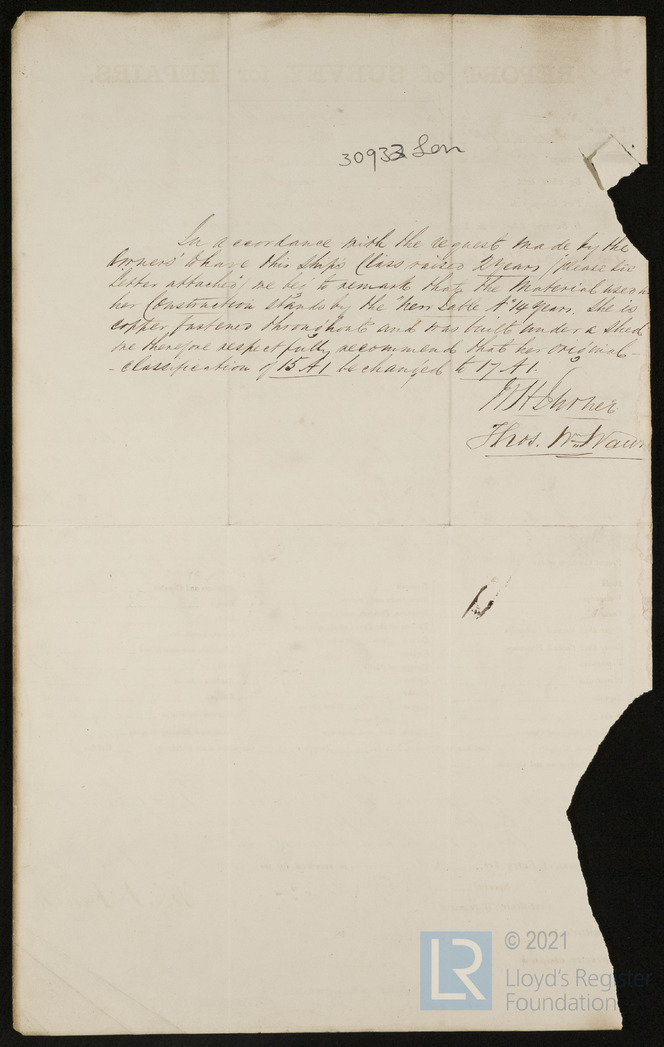 30933 Lon
In accordance with the request made by the
Owners to have this Ship's Class raised 2 years (please see
letter attached) we beg to remark that the Material used in
her Construction stands by the New Table A 14 years. She is
copper fastened throughout and was built under a Shed
we therefore respectfully recommend that her original
classification of 15 A1 be changed to 17 A1.
Thos. Wm
LR
© 2021
Lloyd's Register
Foundation